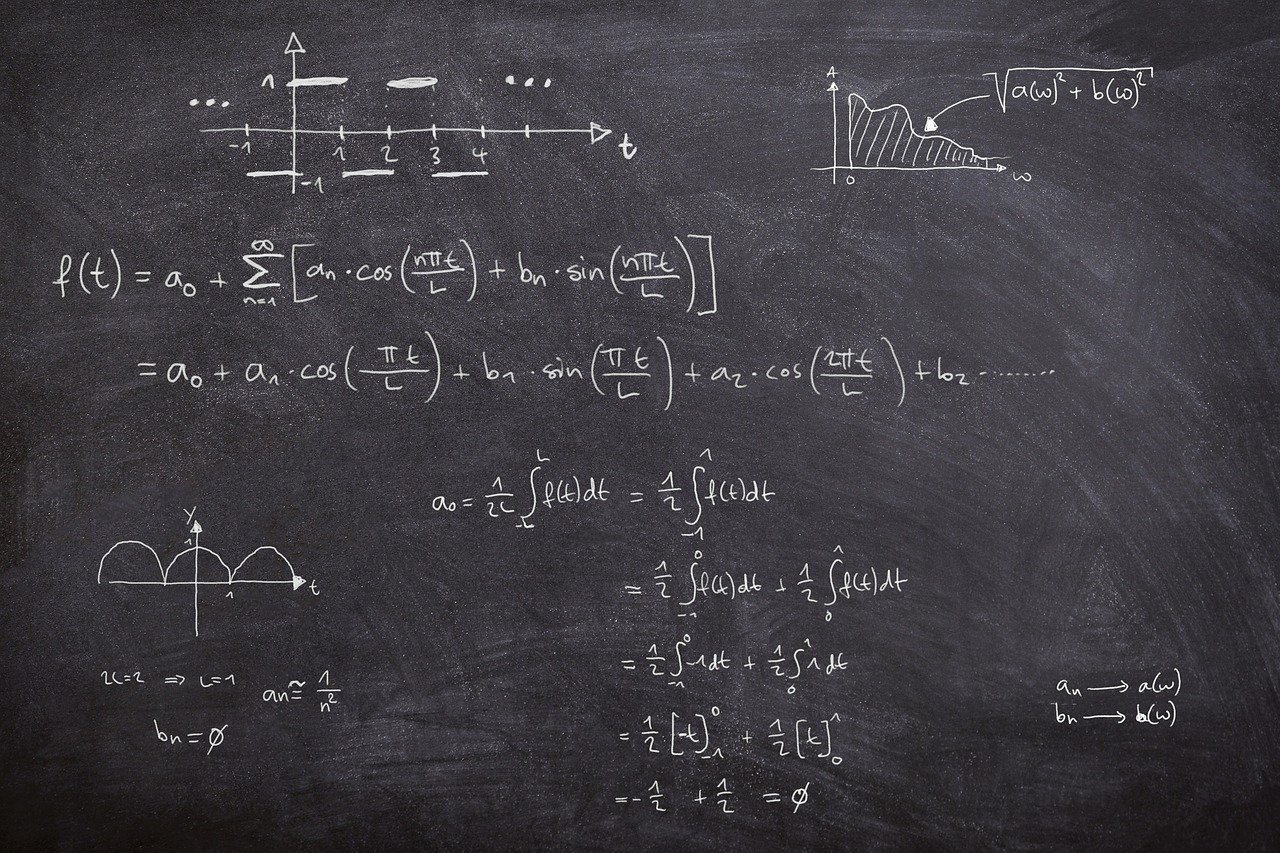 1
... ...
-1 1 2 3 4 t
-1
A
√a(ω)² + b(ω)²
0 ω
f(t) = a₀ + ∑ₙ₌₁^∞ [aₙ · cos(nπt/L) + bₙ · sin(nπt/L)]
= a₀ + a₁ · cos(πt/L) + b₁ · sin(πt/L) + a₂ · cos(2πt/L) + b₂ ........
a₀ = 1/2L ∫₋L^L f(t)dt = 1/2 ∫₋₁^1 f(t)dt
= 1/2 ∫₋₁^0 f(t)dt + 1/2 ∫₀^1 f(t)dt
= 1/2 ∫₋₁^0 -1dt + 1/2 ∫₀^1 1dt
= 1/2 [-t]₋₁^0 + 1/2 [t]₀^1
= -1/2 + 1/2 = ∅
y
1
1 t
2L=2 ⇒ L=1 aₙ ≅ 1/n²
bₙ = ∅
aₙ → a(ω)
bₙ → b(ω)